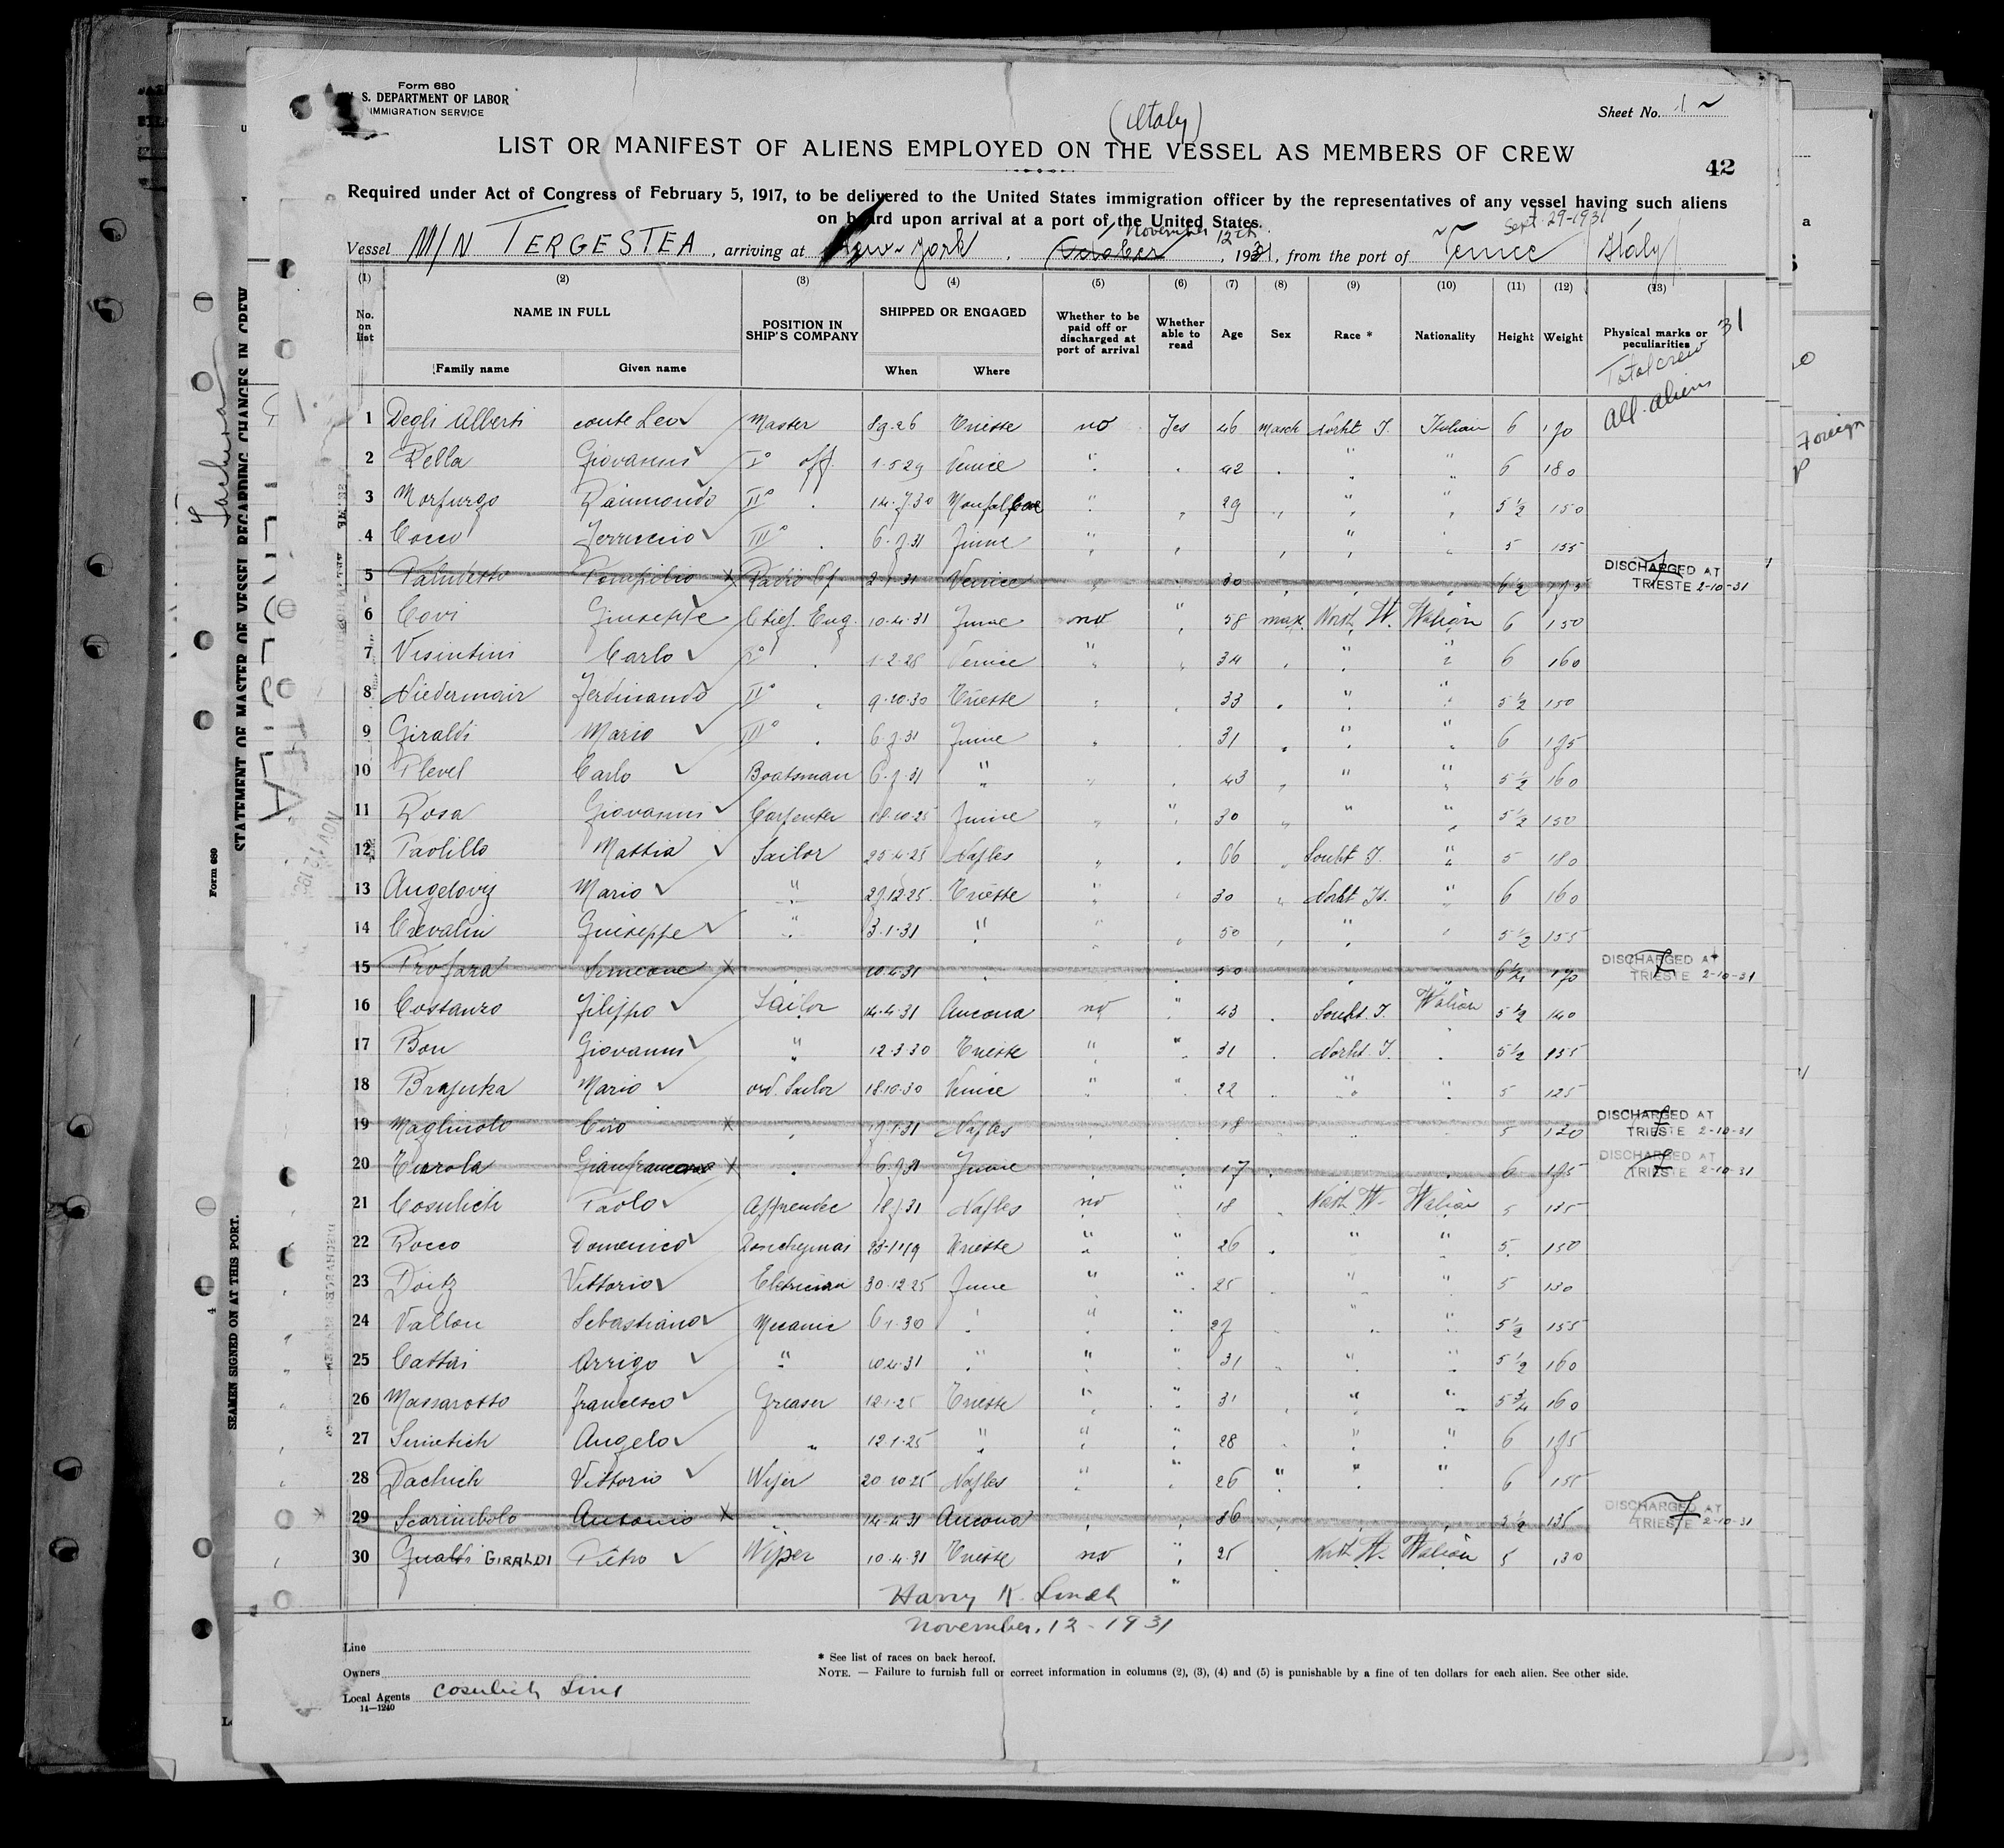 Form 680
U. S. DEPARTMENT OF LABOR
IMMIGRATION SERVICE
Sheet No. 1
(Italy)
LIST OR MANIFEST OF ALIENS EMPLOYED ON THE VESSEL AS MEMBERS OF CREW
42
Required under Act of Congress of February 5, 1917, to be delivered to the United States immigration officer by the representatives of any vessel having such aliens
on board upon arrival at a port of the United States.
Sept. 29-1931
November 12th
Vessel M/N TERGESTEA, arriving at New-York, October, 1931, from the port of Venice Italy
(1) (2) (3) (4) (5) (6) (7) (8) (9) (10) (11) (12) (13)
No. on list NAME IN FULL POSITION IN SHIP'S COMPANY SHIPPED OR ENGAGED Whether to be paid off or discharged at port of arrival Whether able to read Age Sex Race * Nationality Height Weight Physical marks or peculiarities
Family name Given name When Where
31 Total crew
All aliens
1 Degli Alberti conte Leo Master Trieste no Yes 46 Masch Norht I. Italian 6 170
2 Rella Giovanni I° off. 1-5 29 Venice " 42 " " 6 180
3 Morpurgo Raimondo II° 14-7 30 Monfalcone " 29 " " 5 1/2 150
4 Cocco Ferruccio III° 6-7-31 Fiume " " 5 155
5 Pompilio Radio Of 31 Venice 30 6 1/2 175 DISCHARGED AT TRIESTE 2-10-31
6 Covi Giuseppe Chief Eng. 10-4-31 Fiume no " 58 North It. Italian 6 150
7 Visintini Carlo 1-2-28 Venice " 34 " " 6 160
8 Niedermair Ferdinando II° 9-10-30 Trieste 33 " " 5 1/2 150
9 Giraldi Mario III° 6-7-31 Fiume 31 " " 6 175
10 Plevel Carlo Boatsman 6-7-31 " 43 " " 5 1/2 160
11 Rosa Giovanni Carpenter 18-10-25 Fiume " 30 " 5 1/2 150
12 Paolillo Mattia Sailor 25-4-25 Naples 66 Souht I. " 5 180
13 Angelovig Mario " 27.12.25. Trieste " 30 Norht It. " 6 160
14 Crevalin Giuseppe " 3-1-31 " " 50 " 5 1/2 155
15 Profara Simeone 10-4-31 50 6 1/2 170 DISCHARGED AT TRIESTE 2-10-31
16 Costanzo Filippo Sailor 14-4-31 Ancona no " 43 Souht. I. Italian 5 1/2 140
17 Bon Giovanni " 12-3-30 Trieste " " 31 Norht. I. 5 1/2 155
18 Brajuka Mario ord. Sailor 18-10-30 Venice " " 22 " " 5 125
19 Magliulo Ciro 17-1-31 Naples 18 5 120 DISCHARGED AT TRIESTE 2-10-31
20 Gianfrancesco 6-7-31 Fiume 17 6 175 DISCHARGED AT TRIESTE 2-10-31
21 Cosulich Paolo Apprendec 18-7-31 Naples no " 18 North It. Italian 5 135
22 Rocco Domenico Trieste " " 26 " " 5 150
23 Doitz Vittorio Eletrician 30-12-25 Fiume " " 25 " " 5 130
24 Vallon Sebastiano Mecanic 6-1-30 " " " 27 " " 5 1/2 155
25 Cattai Arrigo " 10-4-31 " " " 31 " " 5 1/2 160
26 Massarotto Francesco Greaser 12-1-25 Trieste " " 31 " " 5 3/4 160
27 Simetich Angelo " 12-1-25 " " " 28 " " 6 175
28 Dachich Vittorio Wiper 20-10-25 Naples " " 26 " " " 6 155
29 Scarimbolo Antonio 14-4-31 Ancona 36 5 1/2 135 DISCHARGED AT TRIESTE 2-10-31
30 Gualdi GIRALDI Pietro Wiper 10-4-31 Trieste no " 25 North It. Italian 5 130
Harry K. Lindh
November, 12 - 1931
Line
Owners
Local Agents Cosulich Line
14—1240
* See list of races on back hereof.
NOTE. — Failure to furnish full or correct information in columns (2), (3), (4) and (5) is punishable by a fine of ten dollars for each alien. See other side.
STATEMENT OF MASTER OF VESSEL REGARDING CHANGES IN CREW
Form 680
SEAMEN SIGNED ON AT THIS PORT.
Foreign